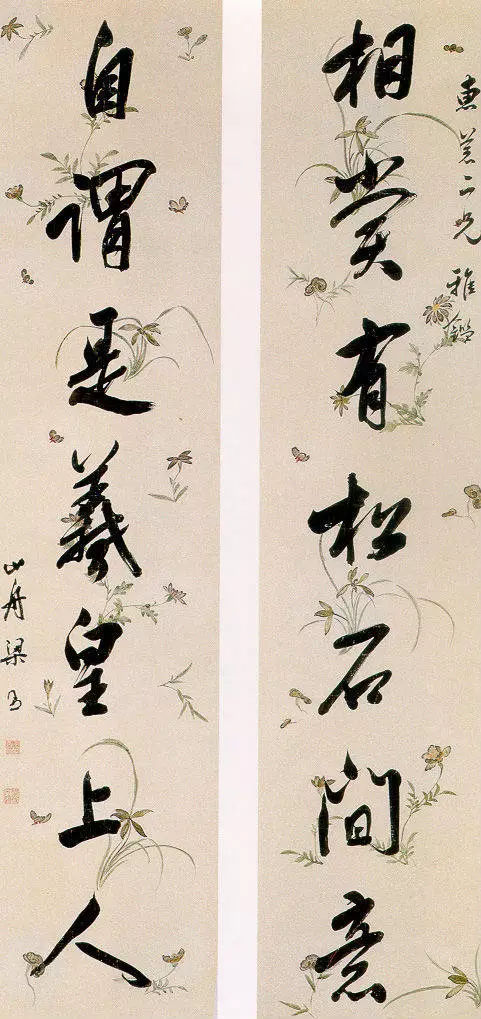 惠苍二兄 雅鑑
相赏有松石間意
自谓是羲皇上人
山舟梁同